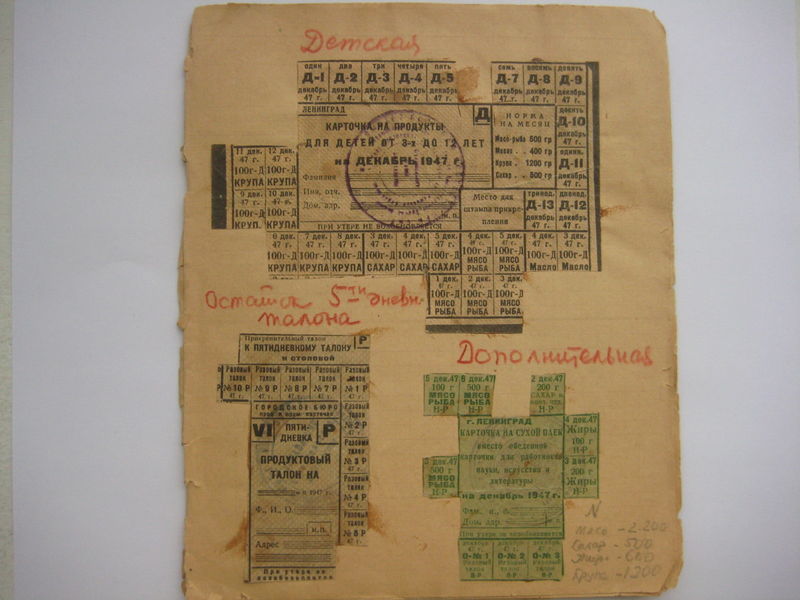 Детская
один два три четыре пять семь восемь девять
Д-1 Д-2 Д-3 Д-4 Д-5 Д-7 Д-8 Д-9
декабрь декабрь декабрь декабрь декабрь декабрь декабрь декабрь
47 г. 47 г. 47 г. 47 г. 47 г. 47 г. 47 г. 47 г.
ЛЕНИНГРАД
Д
КАРТОЧКА НА ПРОДУКТЫ
ДЛЯ ДЕТЕЙ ОТ 3-х ДО 12 ЛЕТ
на ДЕКАБРЬ 1947 г.
Фамилия
Имя, отч.
Дом. адр.
М.П.
ПРИ УТЕРЕ НЕ ВОЗОБНОВЛЯЕТСЯ
НОРМА
НА МЕСЯЦ
Мясо-рыба 600 гр
Масло . 400 гр
Крупа . 1200 гр
Сахар . . 500 гр
десять
Д-10
декабрь
47 г.
один.
Д-11
декабрь
47 г.
Место для
штампа прикре-
пления
тринад. двенад.
Д-13 Д-12
декабрь декабрь
47 г. 47 г.
11 дек. 12 дек.
47 г. 47 г.
100г-Д 100г-Д
КРУПА КРУПА
9 дек. 10 дек.
47 г. 47 г.
100г-Д 100г-Д
КРУП. КРУПА
6 дек. 7 дек. 8 дек. 3 дек. 4 дек. 5 дек. 4 дек. 5 дек. 4 дек. 3 дек.
47 г. 47 г. 47 г. 47 г. 47 г. 47 г. 47 г. 47 г. 47 г.
100г-Д 100г-Д 100г-Д 100г-Д 100г-Д 100г-Д 100г-Д 100г-Д 100г-Д 100г-Д
КРУПА КРУПА КРУПА САХАР САХАР САХАР МЯСО РЫБА МЯСО РЫБА Масло Масло
1 дек. 2 дек. 3 дек.
47 г. 47 г. 47 г.
100г-Д 100г-Д 100г-Д
МЯСО МЯСО МЯСО
РЫБА РЫБА РЫБА
Остаток 5ти дневн.
талона
Прикрепительный талон
Р
К ПЯТИДНЕВНОМУ ТАЛОНУ
в столовой
Разовый Разовый Разовый Разовый Разовый
талон талон талон талон талон
№ 10 Р № 9 Р № 8 Р № 7 Р № 1 Р
47 г. 47 г. 47 г. 47 г. 47 г.
ГОРОДСКОЕ БЮРО
VI
ПЯТИ-
ДНЕВКА
Р
ПРОДУКТОВЫЙ
ТАЛОН НА
1947 г.
Ф., И., О.
М.П.
Адрес
При утере не
возобновляется
Разовый
талон
№ 2 Р
47 г.
Разовый
талон
№ 3 Р
47 г.
Разовый
талон
№ 4 Р
47 г.
Разовый
талон
№ 5 Р
47 г.
Дополнительная
5 дек.47 2 дек.47
100 г 500 г 200 г
МЯСО МЯСО САХАР
РЫБА РЫБА
Н-Р Н-Р Н-Р
г. ЛЕНИНГРАД
КАРТОЧКА НА СУХОЙ ПАЕК
вместо обеденной
карточки для работников
науки, искусства и
литературы
на декабрь 1947 г.
Фам. и., о.
Дом. адр.
При утере не возобновляется
4 дек.47
Жиры
100 г
Н-Р
3 дек.47
200 г
Жиры
Н-Р
3 дек.47
500 г
МЯСО
РЫБА
Н-Р
декабрь декабрь декабрь
47 г. 47 г. 47 г.
О-№ 1 О-№ 2 О-№ 3
Разовый Разовый Разовый
талон талон талон
Н-Р Н-Р Н-Р
N
Мясо - 2-200
Сахар - 500
Жиры - 600
Крупа - 1200